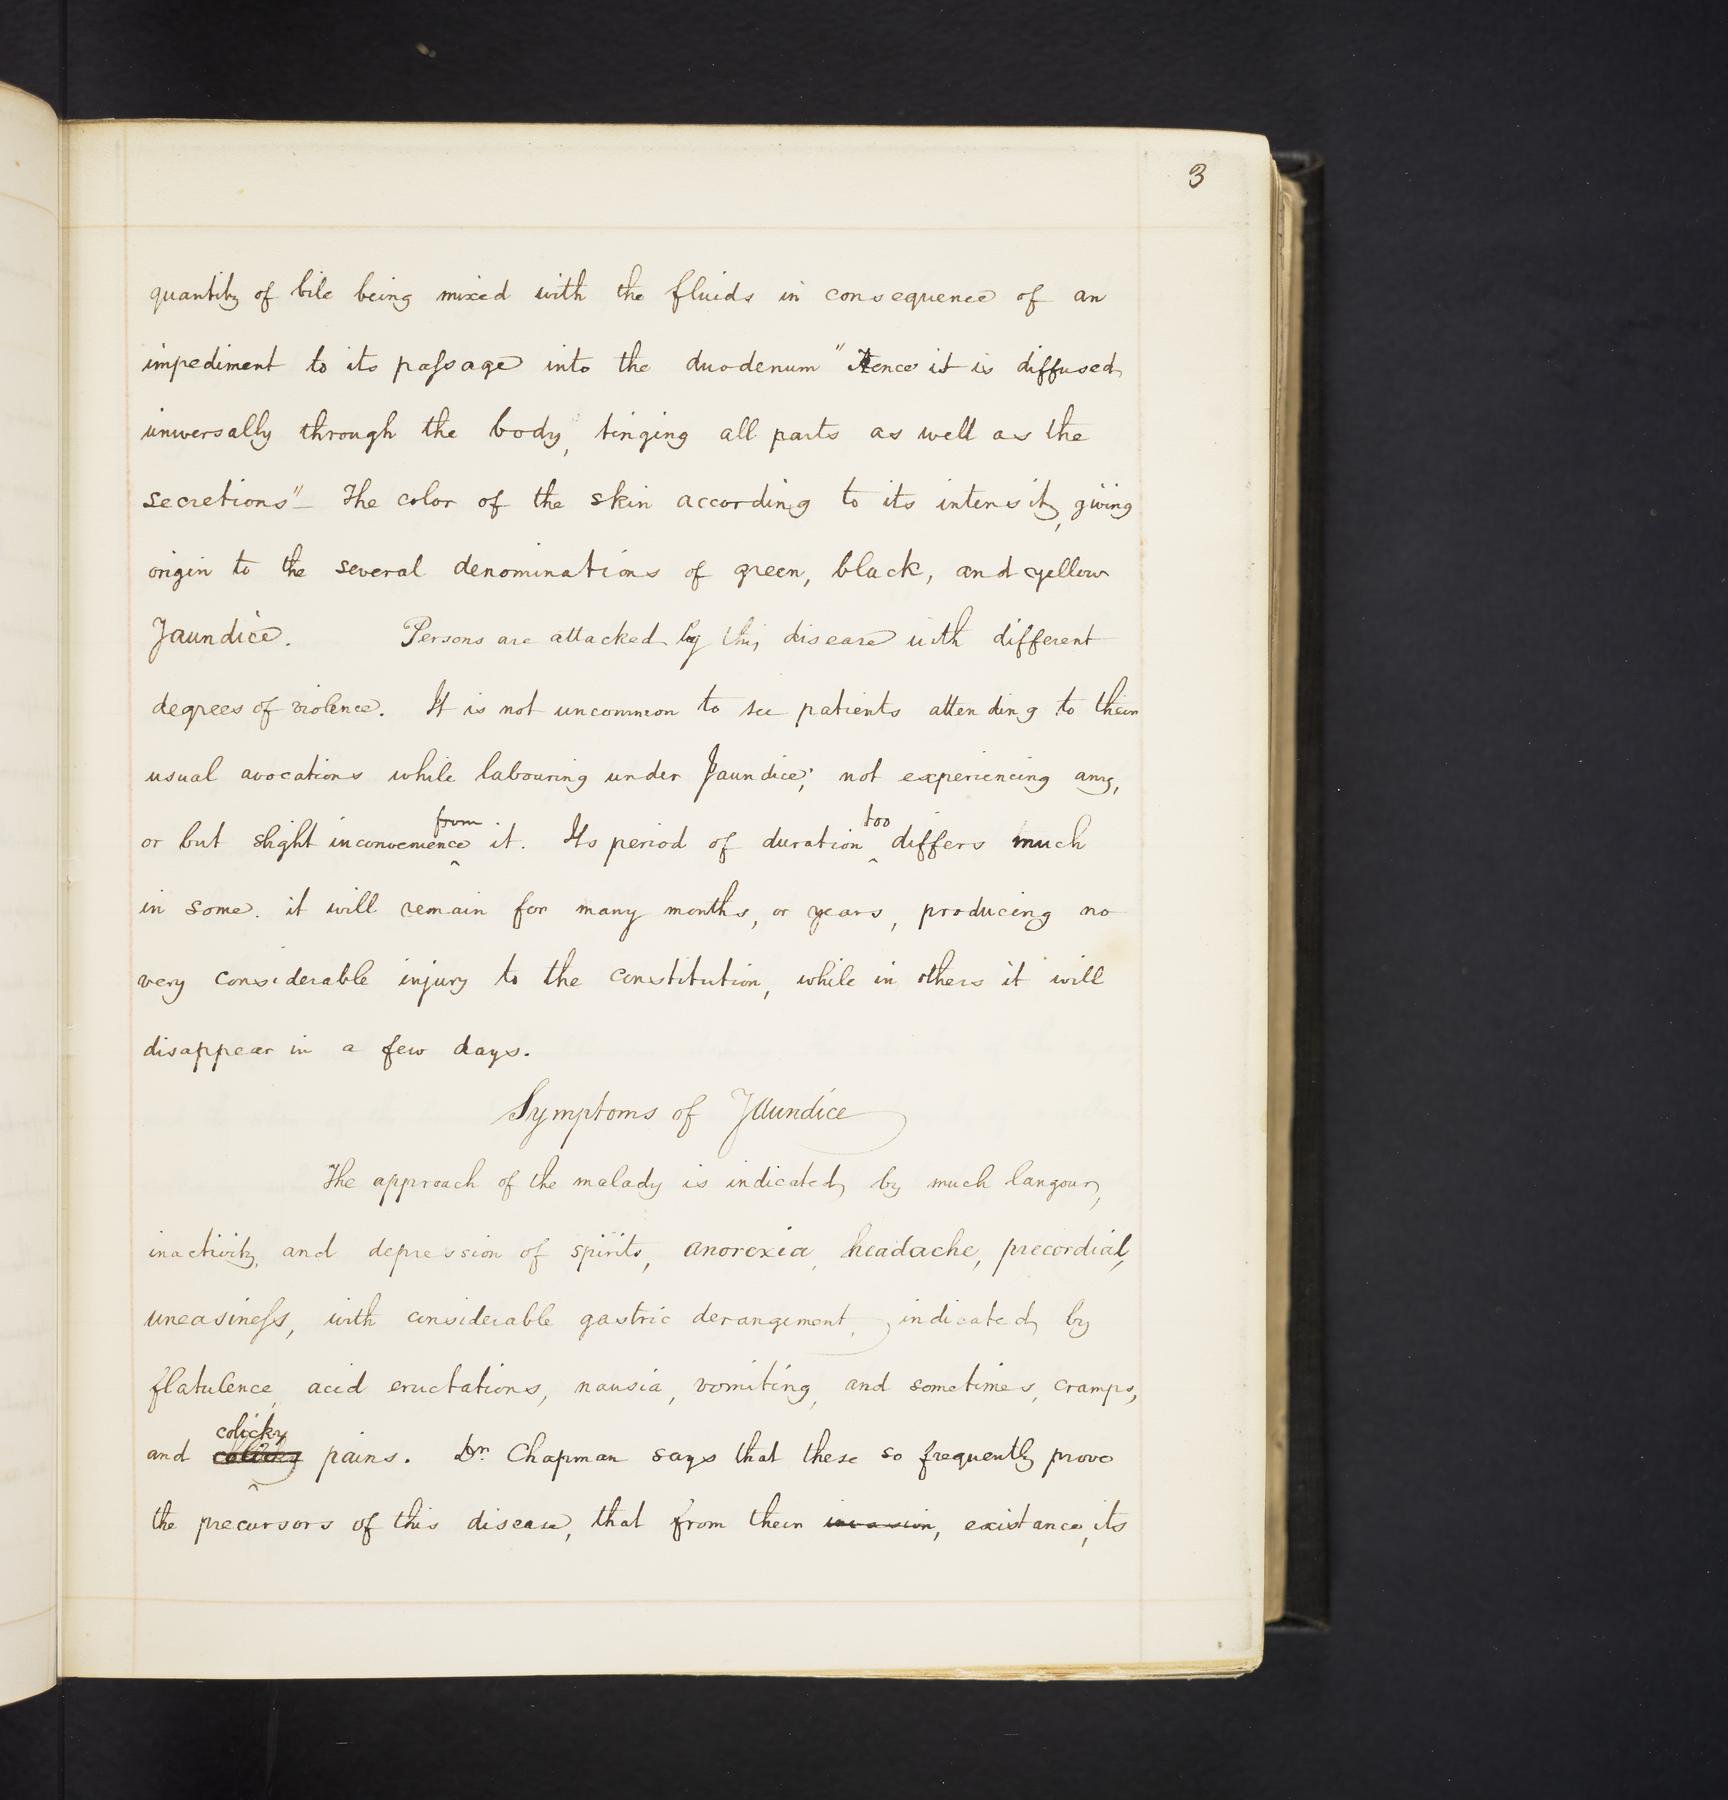 3
quantity of bile being mixed with the fluids in consequence of an
impediment to its passage into the duodenum "Hence it is diffused
universally through the body, tinging all parts as well as the
secretions"_ The color of the skin according to its intensity, giving
origin to the several denominations of green, black, and yellow
Jaundice. Persons are attacked by this disease with different
degrees of violence. It is not uncommon to see patients attending to their
usual avocations while labouring under Jaundice; not experiencing any,
or but slight inconvenience from it. Its period of duration too differs much
in some. it will remain for many months, or years, producing no
very considerable injury to the constitution, while in others it will
disappear in a few days.
Symptoms of Jaundice
The approach of the malady is indicated by much langour,
inactivity, and depression of spirits, anorexia, headache, precordial,
uneasiness, with considerable gastric derangement, indicated by
flatulence, acid eructations, nausia, vomiting, and sometimes, cramps,
and colicky pains. Dr. Chapman says that these so frequently prove
the precursors of this disease, that from their invasion, existance, its